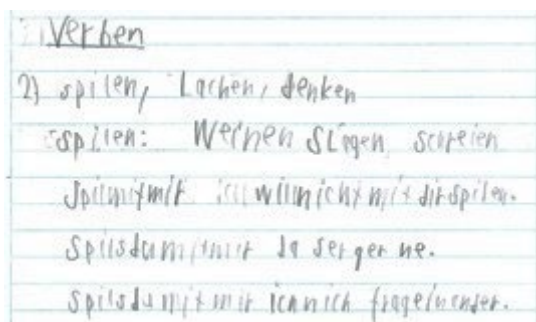 Verben
2) spilen, Lachen, denken
spilen: Weinen Slagen schreien
Spilmitmir ich willnicht mit dirspilen.
Spilsdumitmir Ja ser ger ne.
Spilsdumitmir ich mich frageinander.